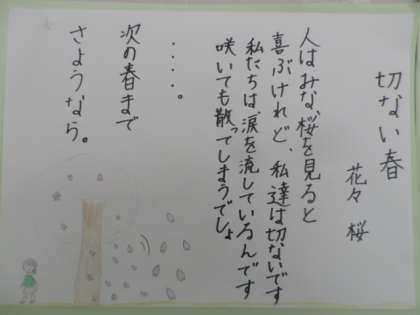 切ない春
花々 桜
人はみな、桜を見ると
喜ぶけれど、私達は切ないです
私たちは、涙を流しているんです
咲いても散ってしまうでしょ
・・・・。
次の春まで
さようなら。